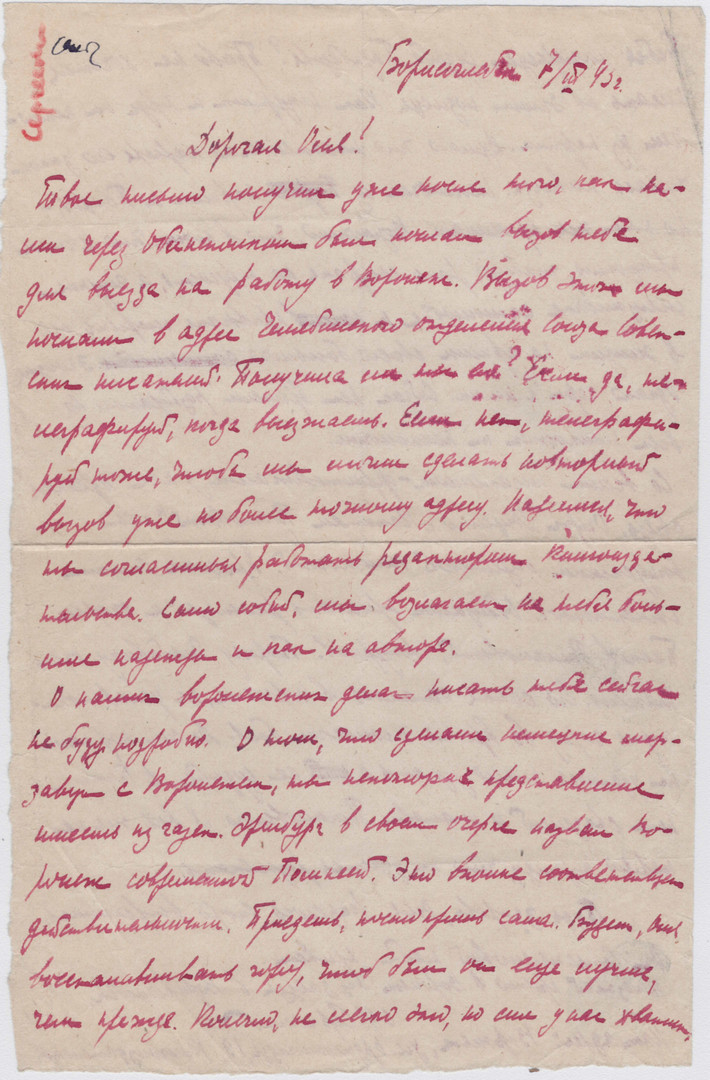 Сергеевой
Борисоглебск 7/III 43г.
Дорогая Оля!
Твое письмо получил уже после того, как на-
ми через Облисполком был послан вызов тебе
для выезда на работу в Воронеж. Вызов этот мы
послали в адрес Челябинского отделения Союза Совет-
ских писателей. Получила ли ты его? Если да, те-
леграфируй, когда выезжаешь. Если нет, телеграфи-
руй тоже, чтобы мы могли сделать повторный
вызов уже по более точному адресу. Надеемся, что
ты согласишься работать редактором Книгоизда-
тельства. Само собой, мы возлагаем на тебя боль-
шие надежды и как на автора.
О наших воронежских делах писать тебе сейчас
не буду подробно. О том, что сделали немецкие мер-
завцы с Воронежем, ты некоторое представление
имеешь из газет. Эренбург в своем очерке назвал Во-
ронеж современной Помпеей. Это вполне соответствует
действительности. Приедешь, посмотришь сама. Будем, Оля,
восстанавливать город, чтоб был он еще лучше,
чем прежде. Конечно, не легко это, но сил у нас хватит.